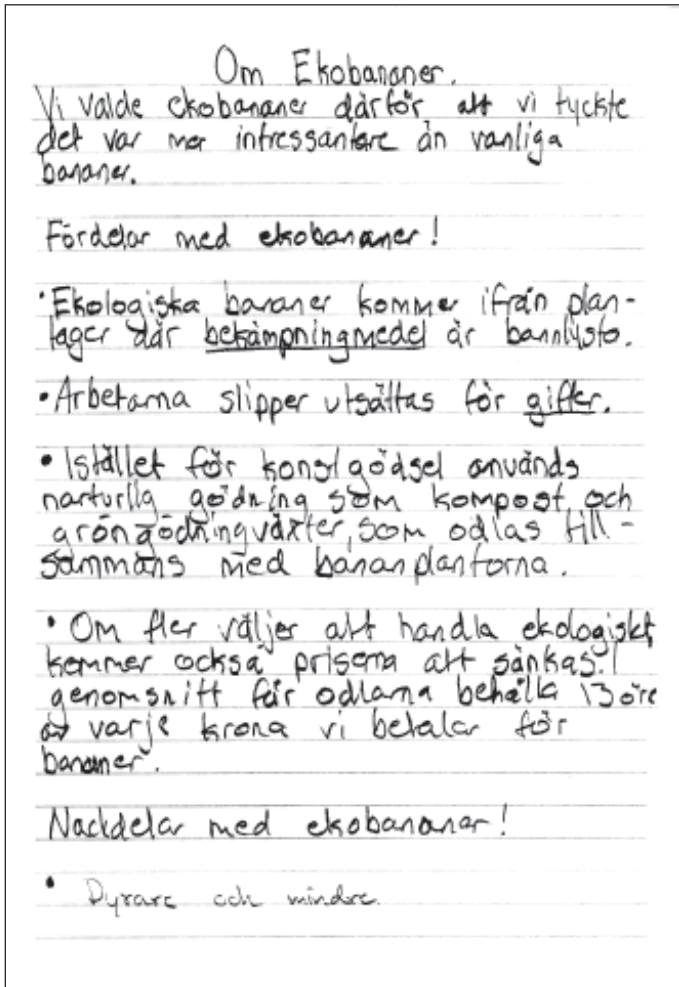 Om Ekobananer.
Vi valde ekobananer därför att vi tyckte
det var mer intressantare än vanliga
bananer.
Fördelar med ekobananer!
• Ekologiska bananer kommer ifrån plan-
tager där bekämpningmedel är bannlysta.
• Arbetarna slipper utsättas för gifter.
• Istället för konstgödsel används
narturlig gödning som kompost och
gröngödningväxter, som odlas till-
sammans med bananplantorna.
• Om fler väljer att handla ekologiskt,
kommer också priserna att sänkas. I
genomsnitt får odlarna behålla 13 öre
av varje krona vi betalar för
bananer.
Nackdelar med ekobananer!
• Dyrare och mindre.